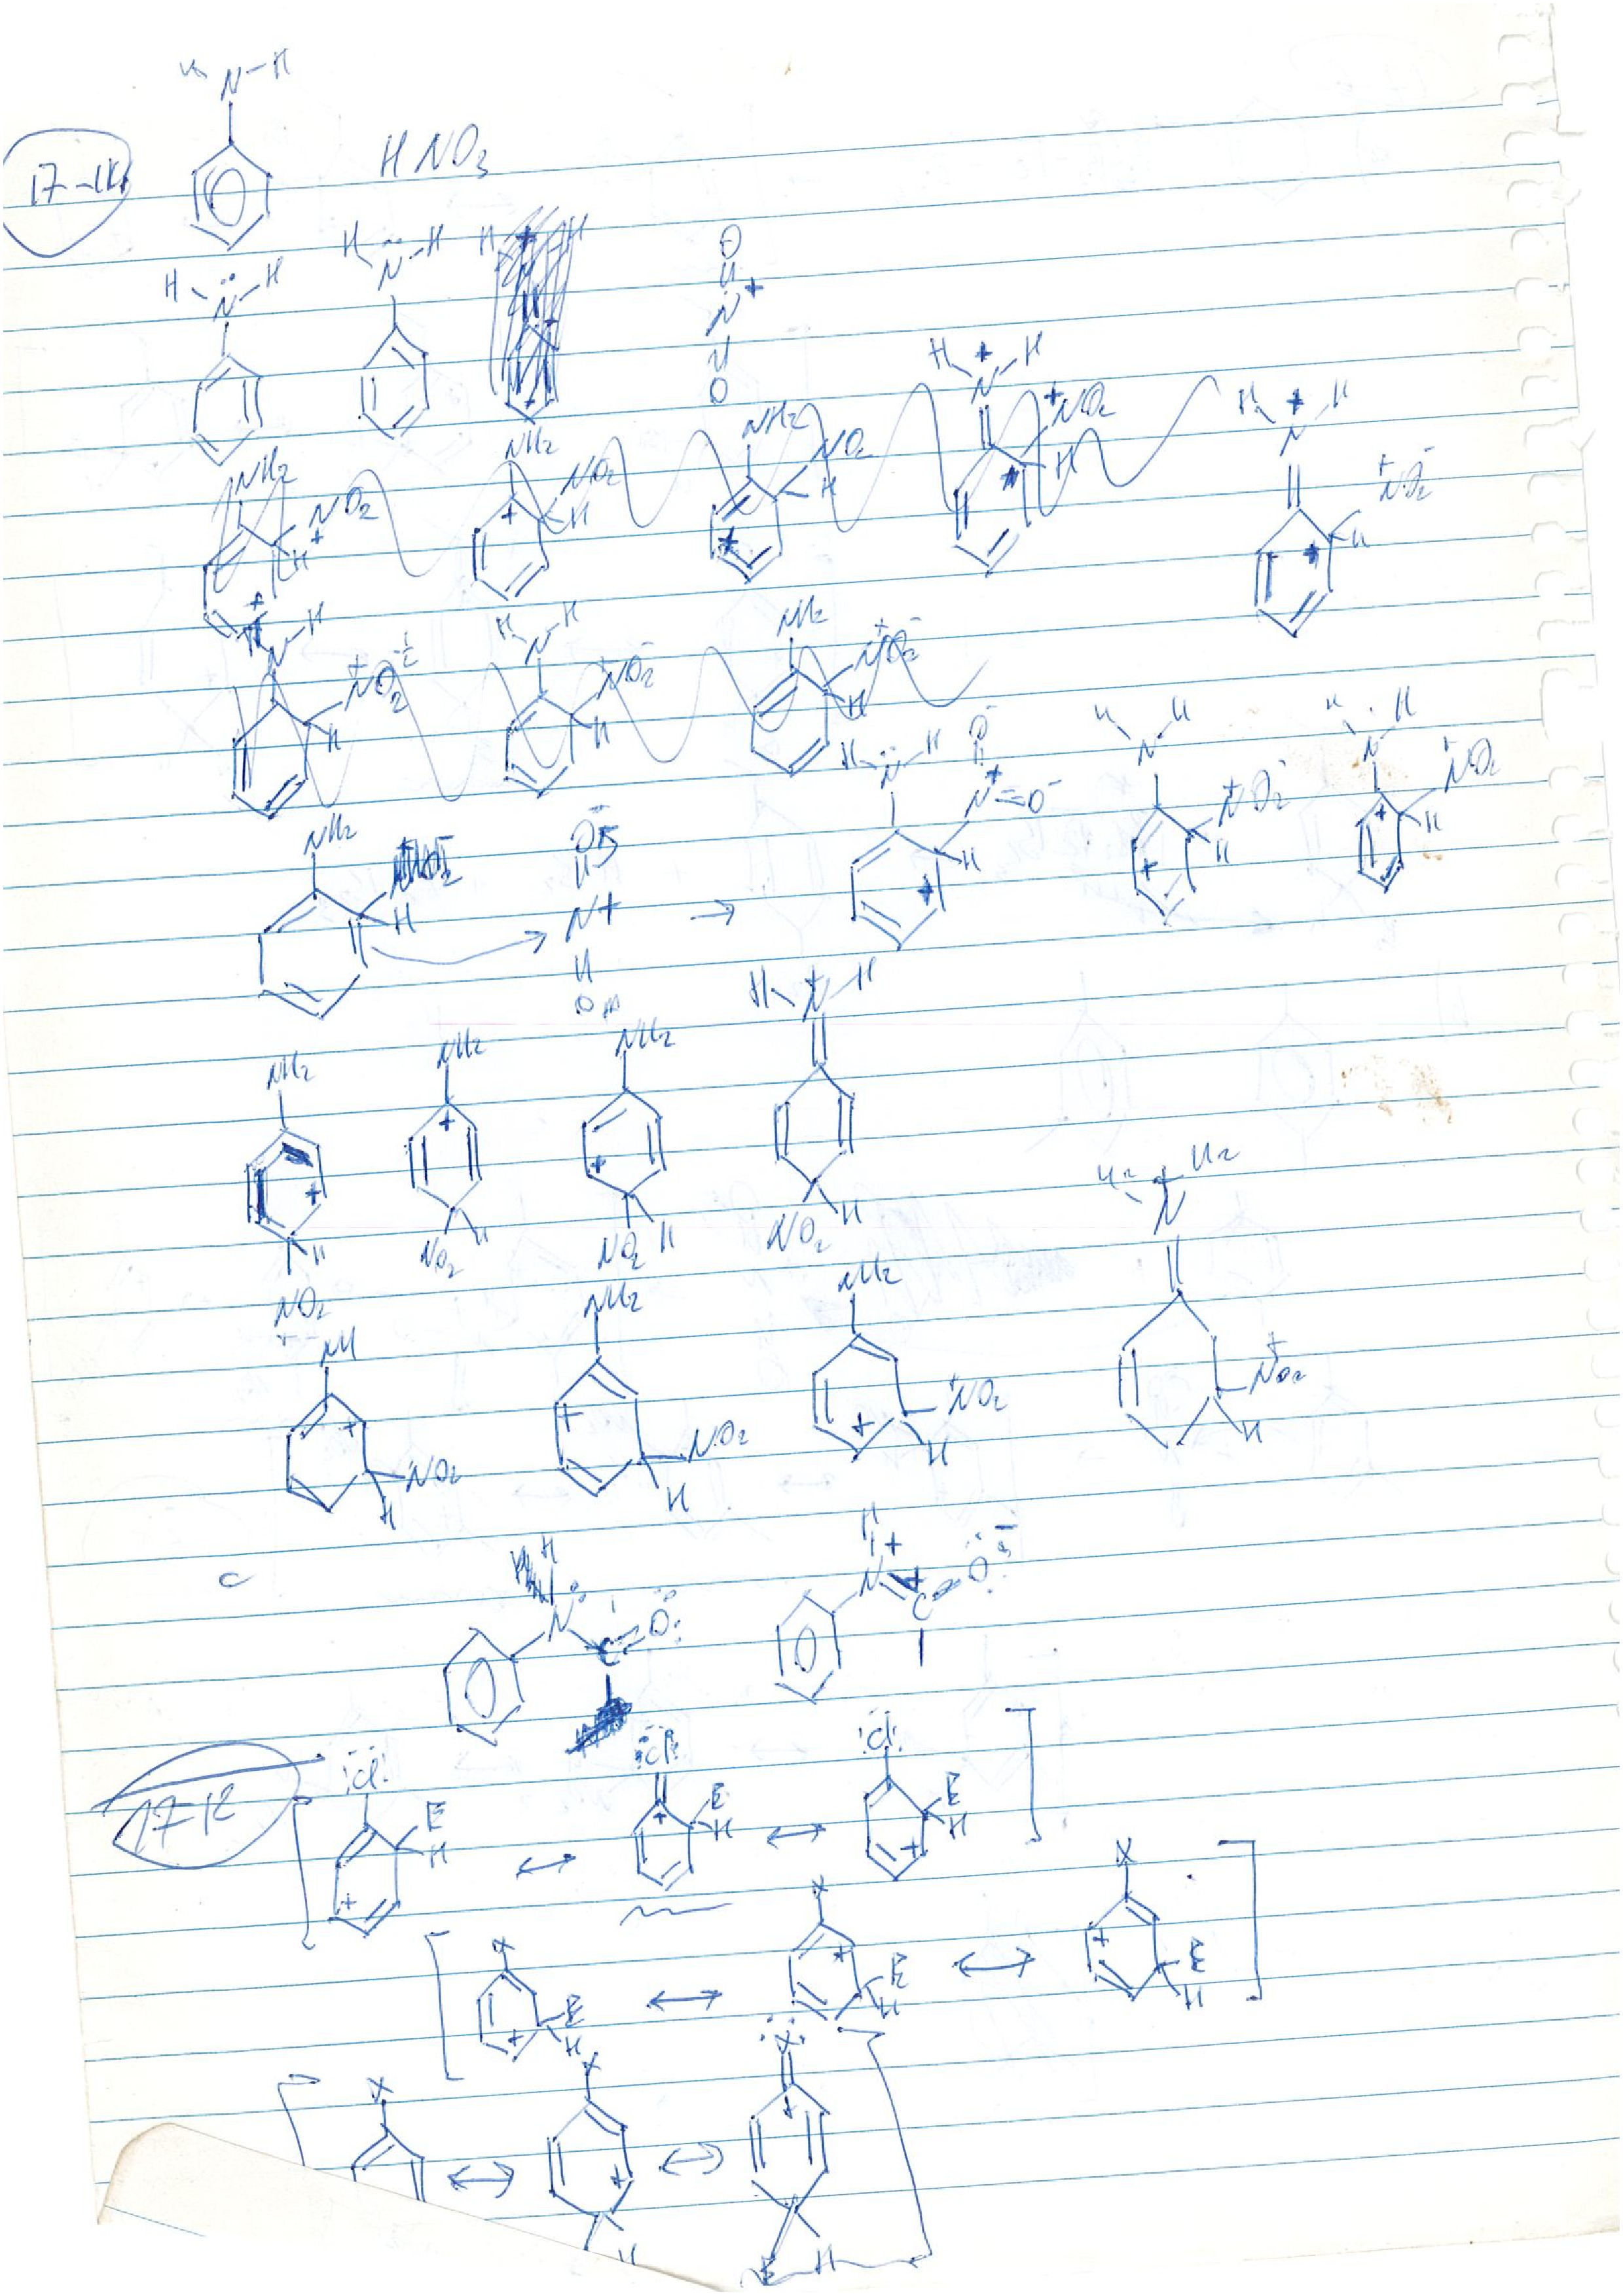 N-H
17-11
HNO3
H N H
H N H
O
N+
O
H + H
N
+NO2
H
H + H
N
+NO2-
H
NH2
NO2
H
+
NH2
NO2
H
+
NH2
NO2
H
+
N-H
+NO2
H
H N H
+NO2-
H
NH2
+NO2-
H
NH2
H
O
N+
O
→
H N H
O-
N+=O-
H
+
H N H
+NO2-
H
+
H N H
+NO2
H
+
NH2
+
H
NO2
NH2
+
NO2 H
NH2
+
NO2 H
H + H
N
NO2 H
NH
+
NO2
H
NH2
+
NO2
H
NH2
+
+NO2
H
+
N
+NO2
H
c
H
N
C=O:
H
+
N
C
O:-
17-12
[ :Cl: E H + ↔ :Cl: E H + ↔ :Cl: E H + ]
[ X E H + ↔ X E H + ↔ X E H + ]
[ X ↔ X + H ↔ :X: + E H ]